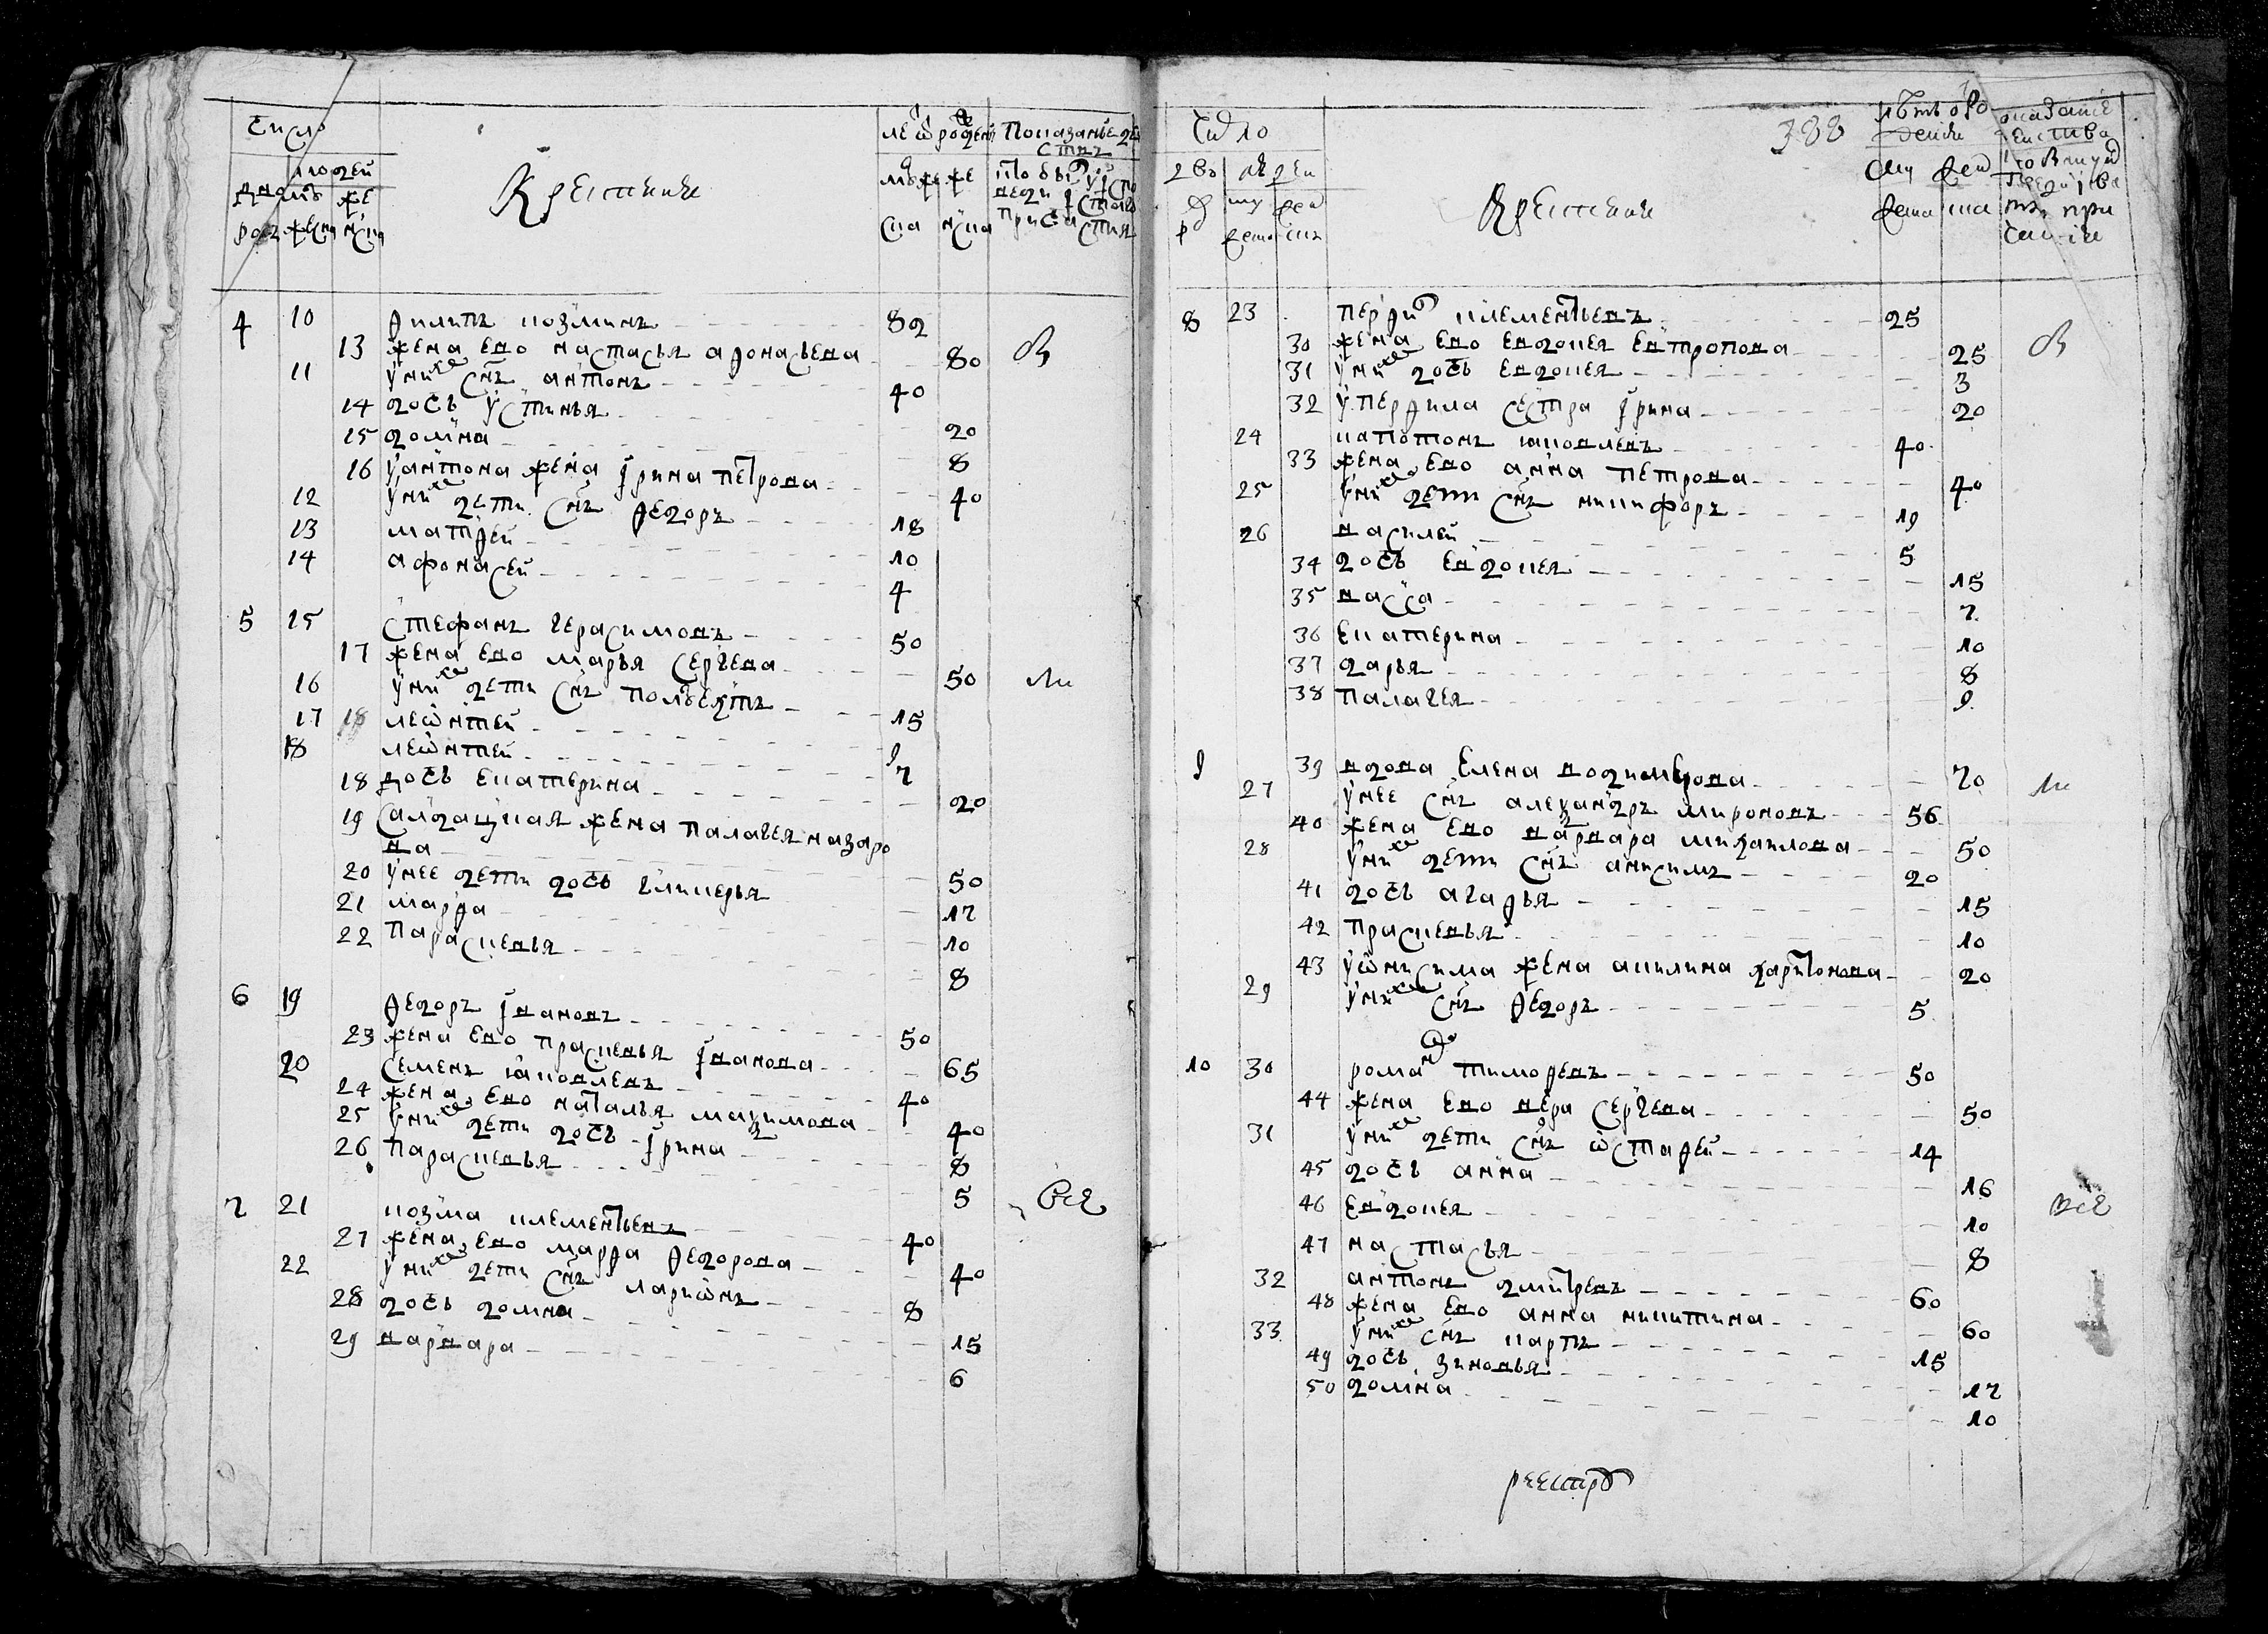 Число
людей
дворов мужеска женска
Крестьяне
лет от рождения
мужеска женска
Показание действ
кто был у исповеди и святого причастия
4 10 филипъ козминъ 82
13 жена ево настасья афонасьева 80 в
11 у них снъ антонъ 40
14 дочь устинья 20
15 домна 8
16 у антона жена ирина петрова 40
12 у них дети снъ федоръ 18
13 матфей 10
14 афонасей 4
5 15 стефанъ герасимовъ 50
17 жена ево марья сергеева 50 ли
16 у них дети снъ полѣехтъ 15
17 18 леонтей 9
18 леонтей 7
18 дочь екатерина 20
19 салдацкая жена палагея назаро
ва 50
20 у нее дети дочь гликерья 17
21 марфа 10
22 парасковья 8
6 19 федоръ ивановъ 50
23 жена ево прасковья иванова 65
20 семенъ яковлевъ 40
24 жена ево наталья максимова 40
25 у них дети дочь ирина 8
26 парасковья 5
7 21 козма клементьевъ 40 все
27 жена ево марфа федорова 40
22 у них дети снъ ларионъ 8
28 дочь домна 15
29 варвара 6
388
Число
дво ров
му жеска жен ска
Крестьяне
лѣтъ от рождения
му жеска жен ска
8 23 перфил клементьевъ 25
30 жена ево евдокея евтропова 25 в
31 у них дочь евдокея 3
32 у перфила сестра ирина 20
24 капотонъ яковлевъ 40
33 жена ево анна петрова 40
25 у них дети снъ никифоръ 19
26 василей 5
34 дочь евдокея 15
35 васса 7
36 екатерина 10
37 дарья 8
38 палагея 9
9 39 вдова елена володимерова 70 ли
27 у нее снъ александръ мироновъ 56
40 жена ево варвара михаилова 50
28 у них дети снъ анисимъ 20
41 дочь агафья 15
42 прасковья 10
43 у онисима жена акилина харитонова 20
29 у них снъ федоръ 5
10 30 роман тимофевъ 50
44 жена ево вера сергеева 50
31 у них дети снъ остафей 14
45 дочь анна 16
46 евдокея 10 все
47 настасья 8
32 антонъ дмитревъ 60
48 жена ево анна никитина 60
33 у них снъ карпъ 15
49 дочь зиновья 17
50 домна 10
реестръ